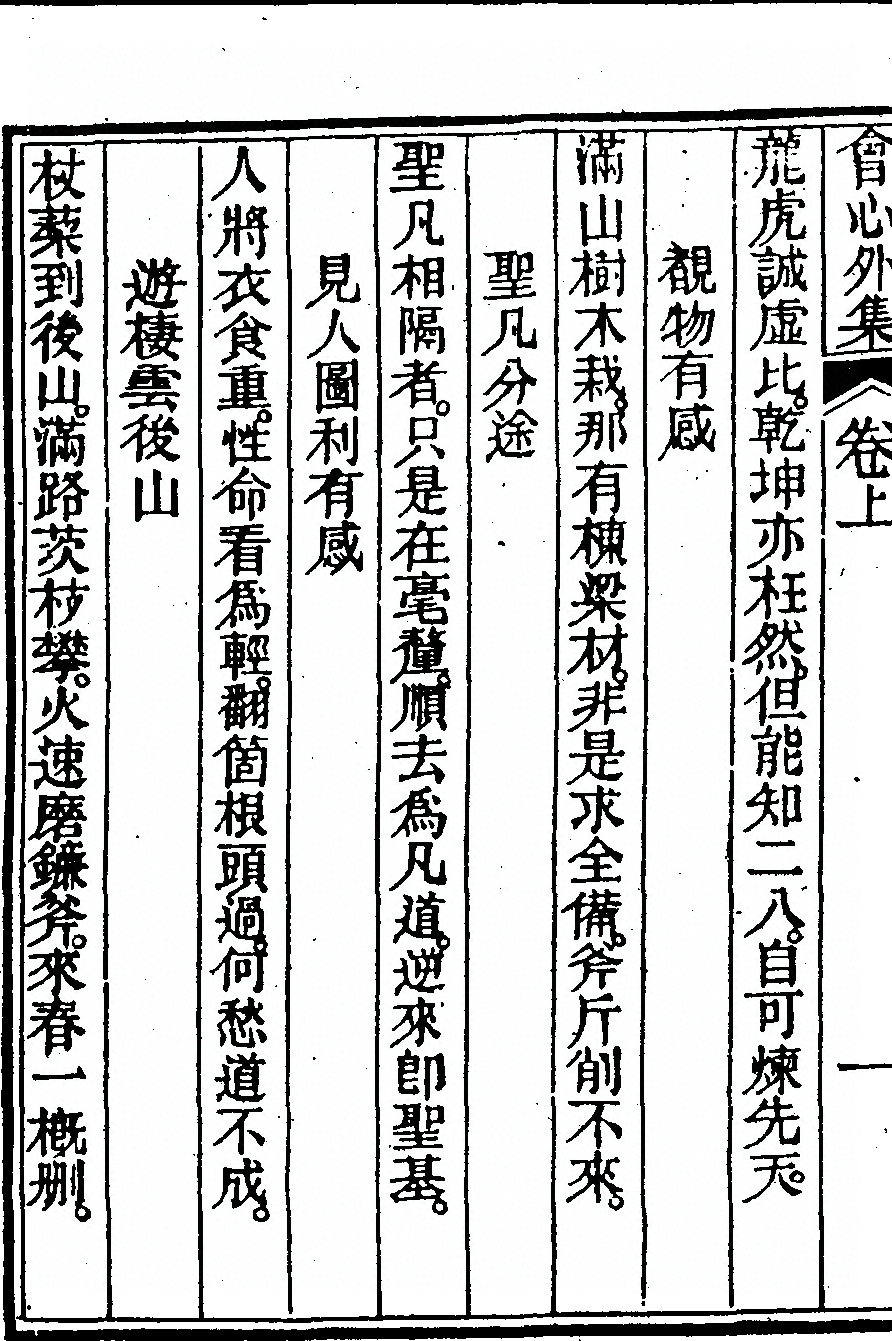 會心外集 卷上 一
龍虎誠虛比。乾坤亦枉然。但能知二八。自可煉先天。
覩物有感
滿山樹木栽。那有棟梁材。非是求全備。斧斤削不來。
聖凡分途
聖凡相隔者。只是在毫釐。順去爲凡道。逆來卽聖基。
見人圖利有感
人將衣食重。性命看爲輕。翻箇根頭過。何愁道不成。
遊棲雲後山
杖藜到後山。滿路茨枝攀。火速磨鐮斧。來春一概刪。